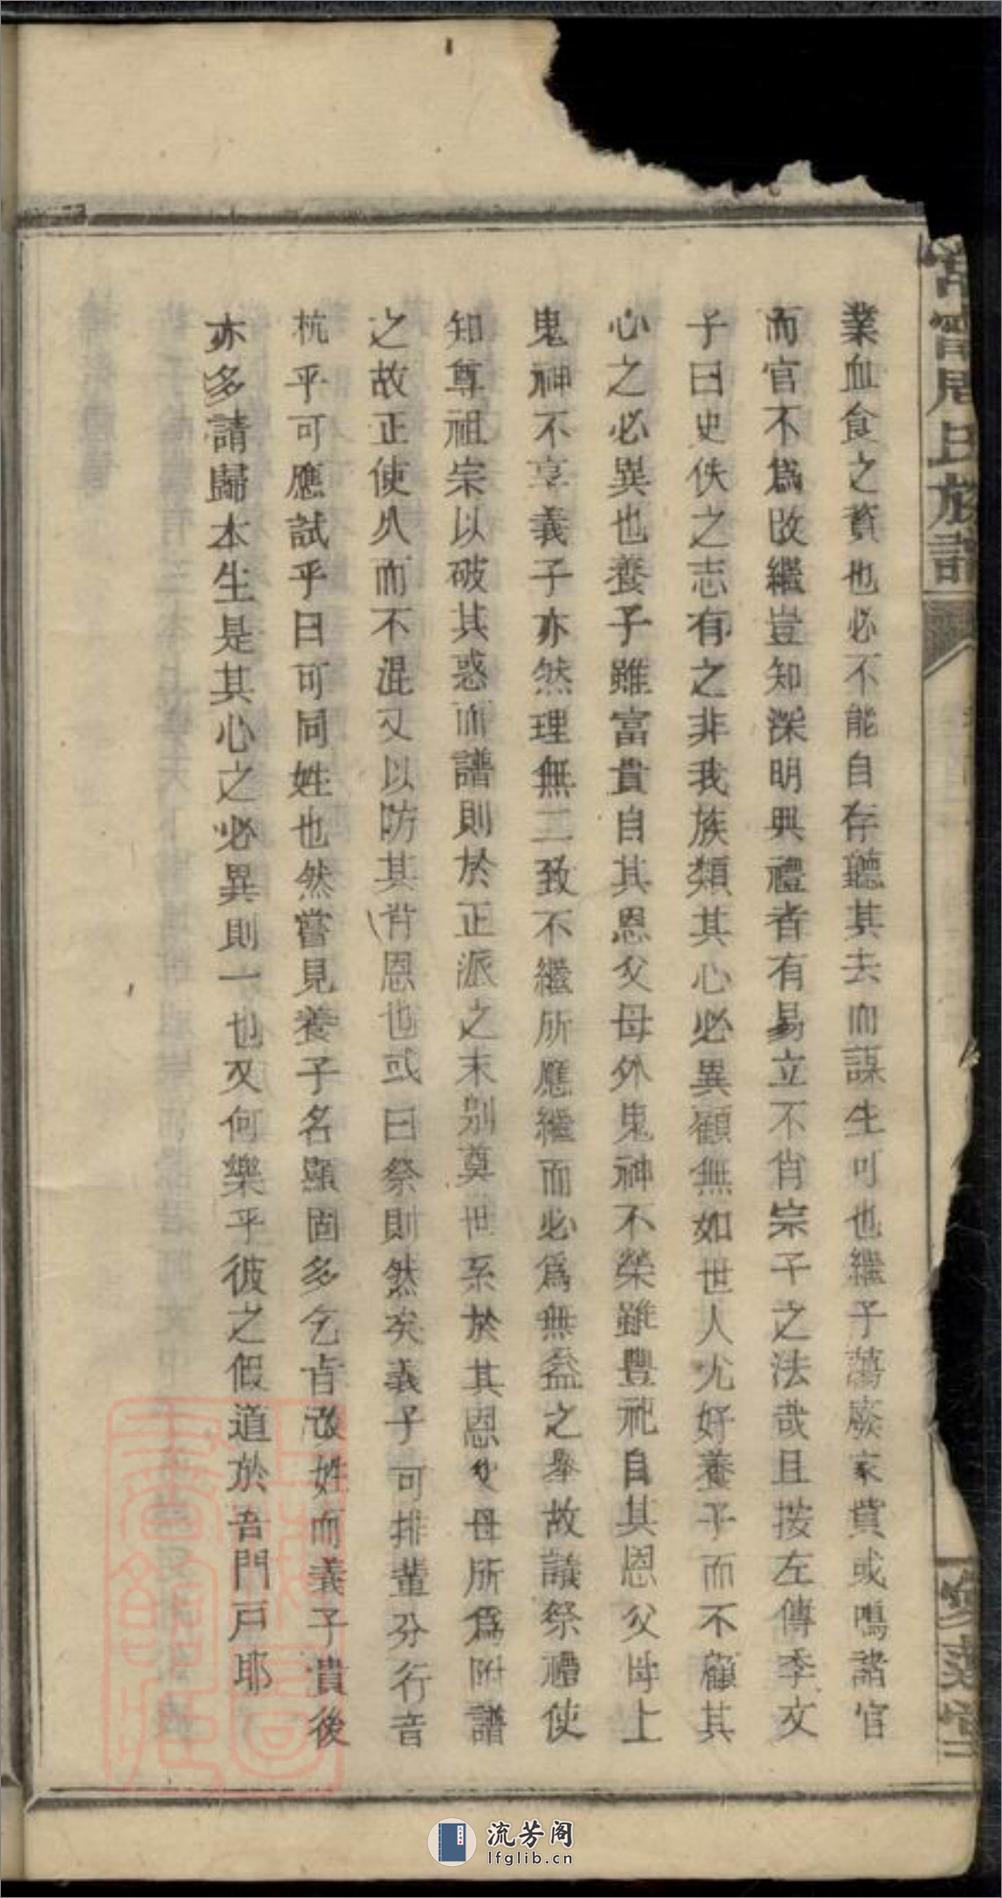 業血食之資也必不能自存聽其去而謀生可也繼子蕩廢家貲或鳴諸官
而官不爲改繼豈知深明典禮者有易立不肖宗子之法哉且按左傳季文
子曰史佚之志有之非我族類其心必異顧無如世人尤好養子而不顧其
心之必異也養子雖富貴自其恩父母外鬼神不榮雖豐祀自其恩父母上
鬼神不享義子亦然理無二致不繼所應繼而必爲無益之舉故議祭禮使
知尊祖宗以破其惑而譜則於正派之末別奠世系於其恩父母所爲附譜
之故正使久而不混又以防其背恩也或曰祭則然矣義子可排輩分行音
杭乎可應試乎曰可同姓也然嘗見養子名顯固多乞旨改姓而義子貴後
亦多請歸本生是其心之必異則一也又何樂乎彼之假道於吾門戸耶
周氏族譜
愛蓮堂
流芳阁
lfglib.cn